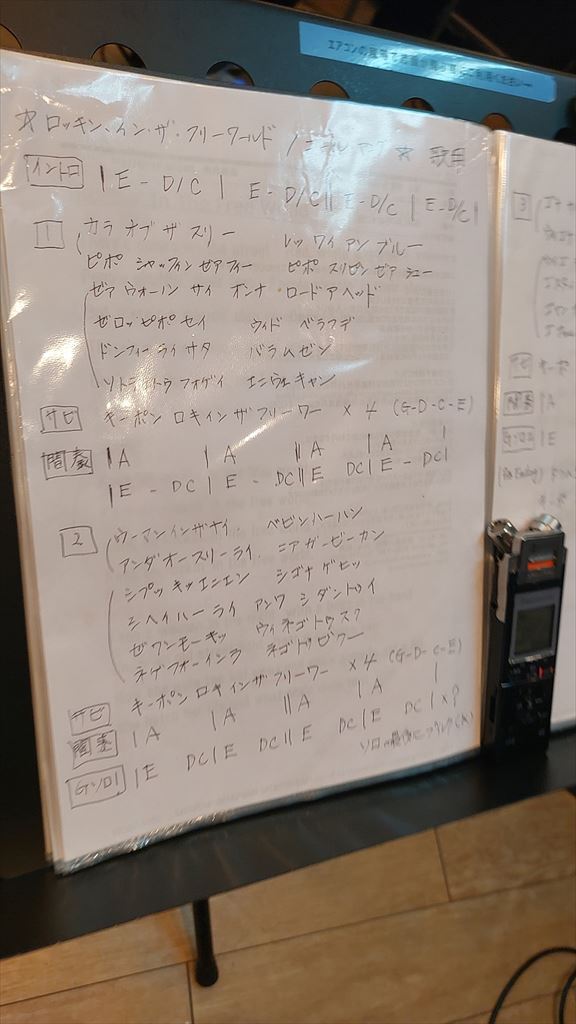 エアコンの
☆ ロッキン・イン・ザ・フリーワールド / ☆ 歌用
イントロ | E - D/C | E - D/C || E - D/C | E - D/C |
1 カラ オブ ザ スリー レッ ワイ アン ブルー
ピポ シャッフィン ゼア フィー ピポ スリピン ゼア シュー
ゼア ウォーニン サイ オンナ ロード アヘッド
ゼロッ ピポ セイ ウィド ベラフデ
ドンフィーライ サタ バラムゼン
ソ トライ トゥ フォゲイ エニウェ キャン
サビ キーポン ロキィンザ フリーワー × 4 (G-D-C-E)
間奏 | A | A || A | A |
| E - DC | E - DC || E DC | E - DC |
2 ウーマン インザナイ ベビンハーハン
アンダ オースリーライ ニア ガービーカン
シプッ キッ エニエン シゴナ ゲヒッ
シヘイハーライ アンワ シダントゥイ
ゼワンモーキッ ウィネゴトゥスク
ネゲフォーインラ ネゴトゥビクー
サビ キーポン ロキィンザフリーワー × 4 (G-D-C-E)
間奏 | A | A || A | A |
Gソロ1 | E DC | E DC || E DC | E DC | ×?
ソロの最後に (A)
3
サビ キーポ
間奏 | A
Gソロ2 | E